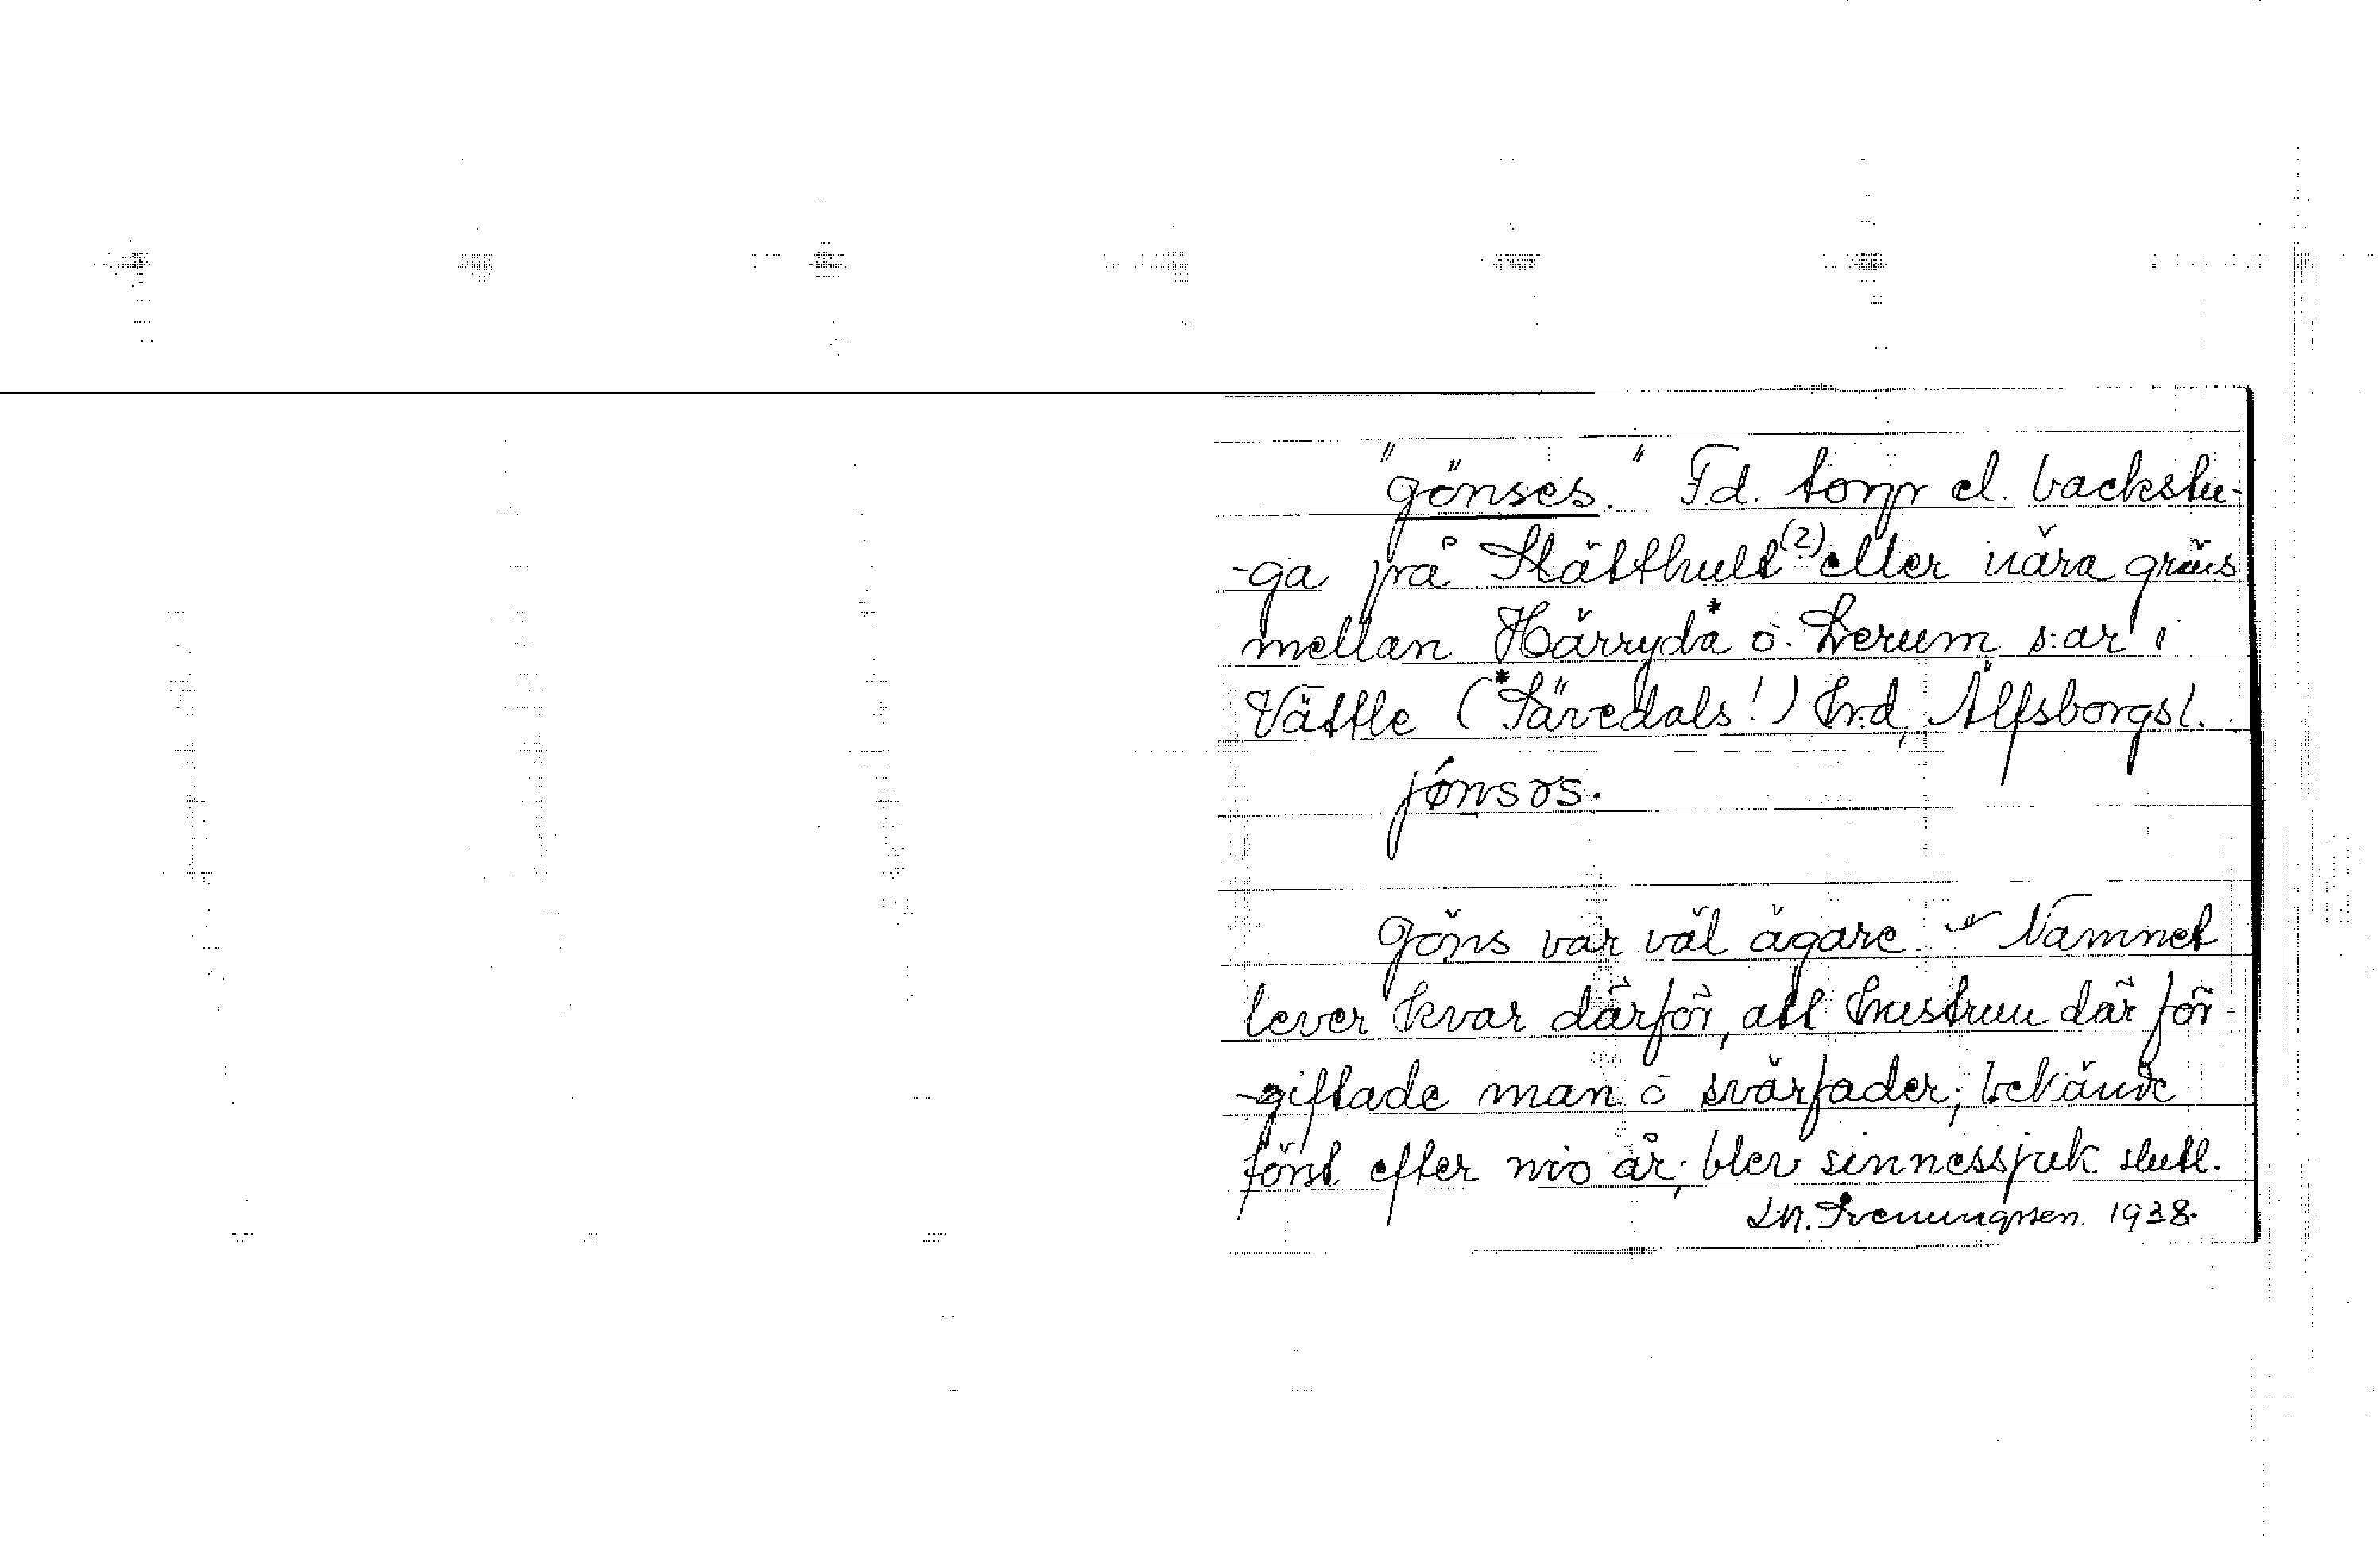 "Jönses." F.d. torp el. backstu-
-ga på Slätthult (?) eller nära gräns
mellan Härryda* o. Lerum s:ar i
Vättle (*Sävedals!) hrd, Älfsborgsl.
jønsəs.
Jöns var väl ägare. - Namnet
lever kvar därför, att hustrun där för-
-giftade man o svärfader; bekände
först efter nio år; blev sinnessjuk slutl.
1938.